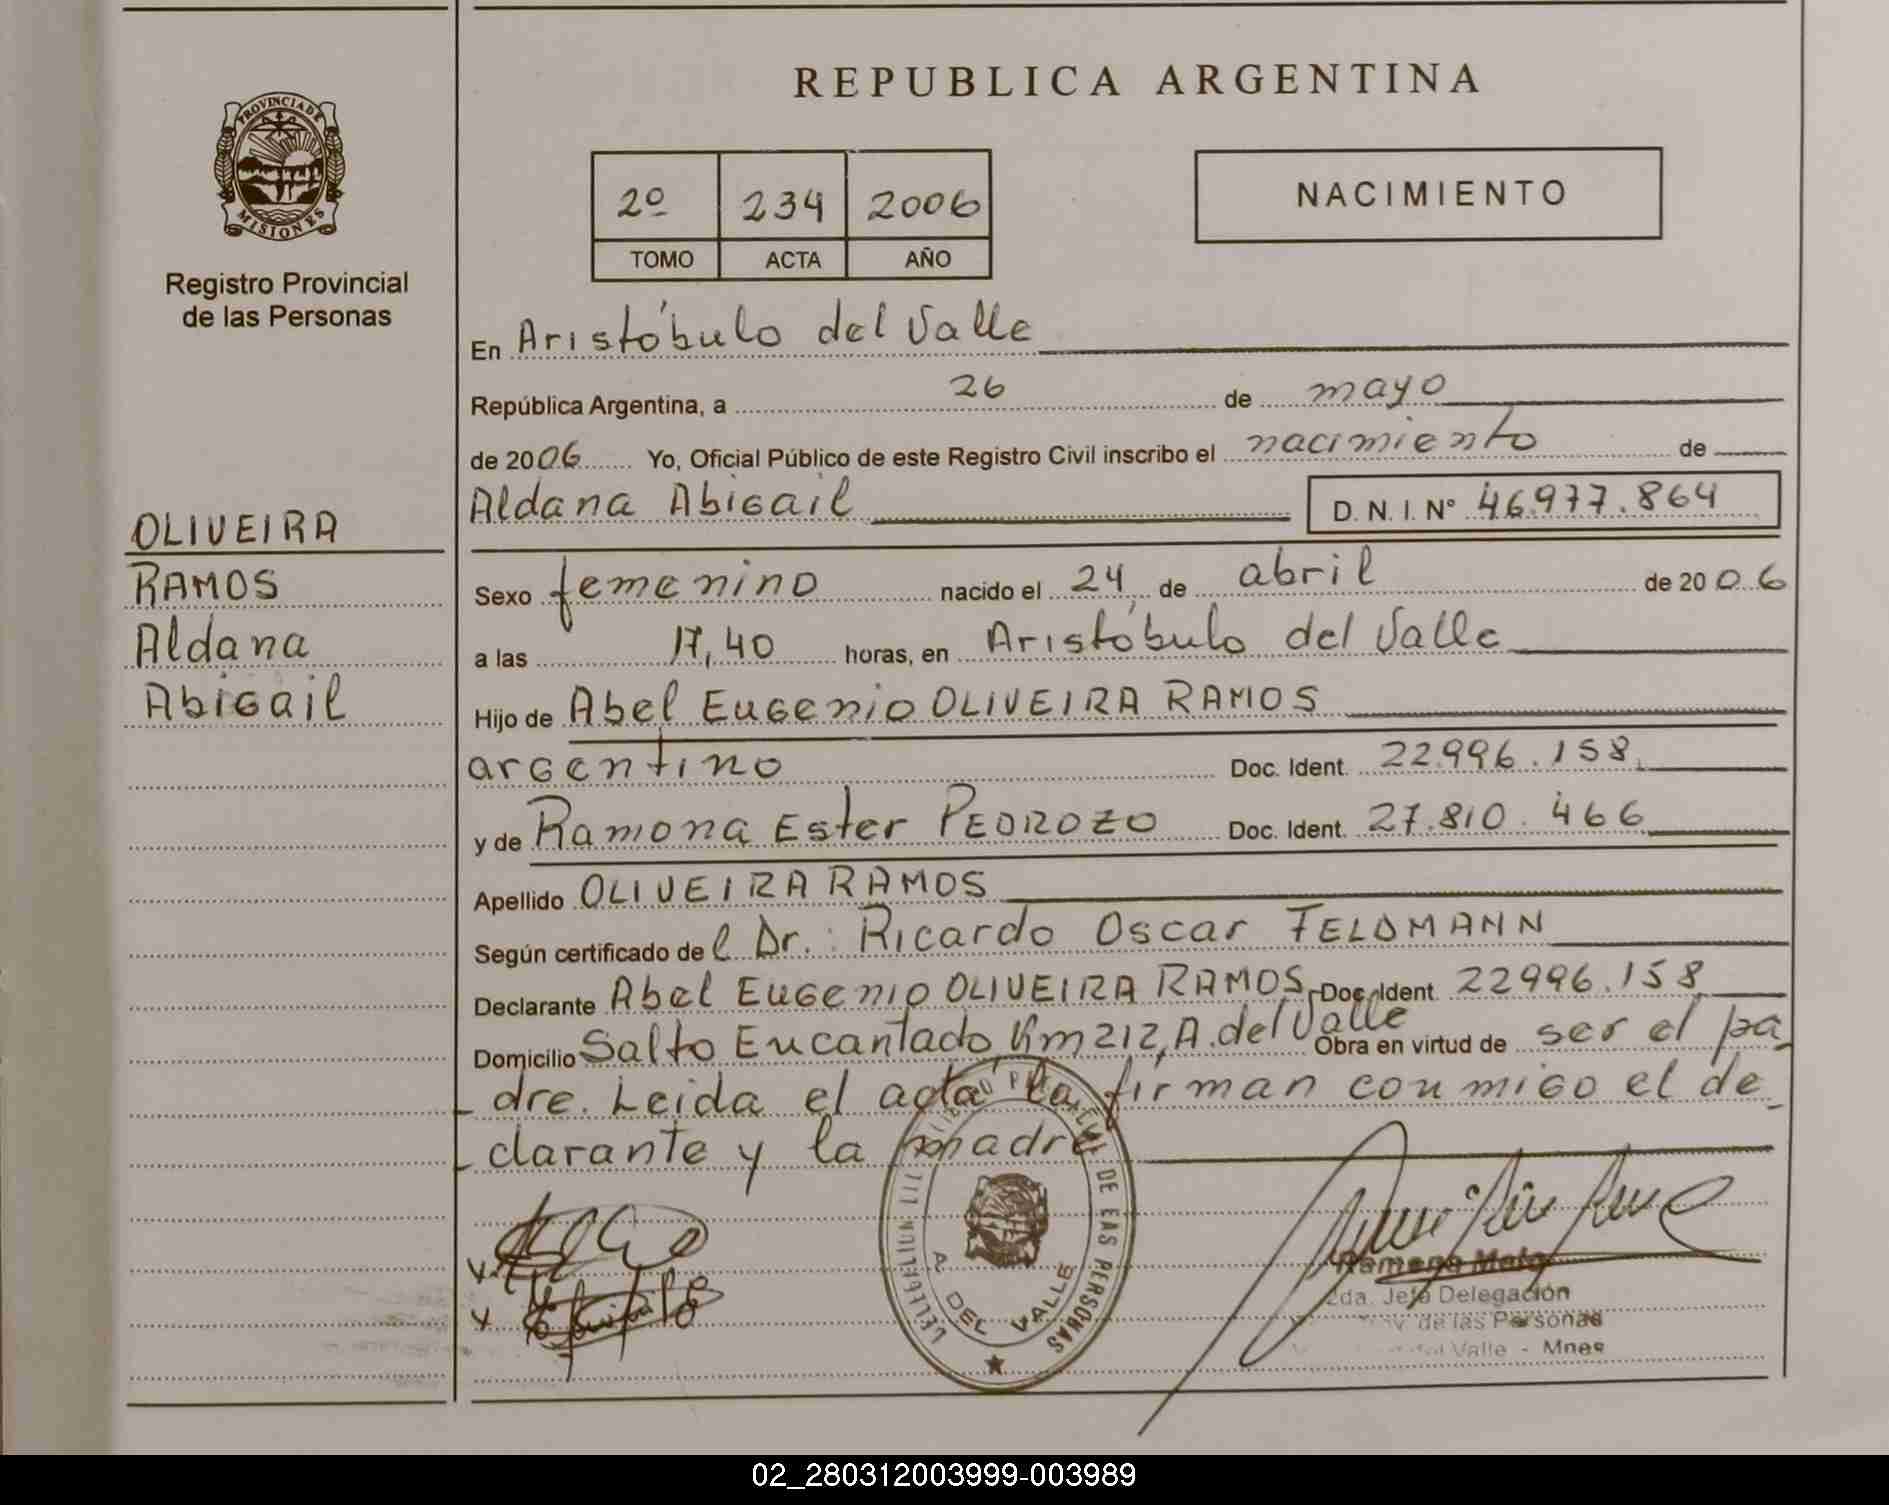 REPUBLICA ARGENTINA
PROVINCIA DE MISIONES
Registro Provincial
de las Personas
2º 234 2006
TOMO ACTA AÑO
NACIMIENTO
OLIVEIRA
RAMOS
Aldana
Abigail
En Aristóbulo del Valle
República Argentina, a 26 de mayo
de 2006 Yo, Oficial Público de este Registro Civil inscribo el nacimiento de
Aldana Abigail D. N. I. Nº 46.977.864
Sexo femenino nacido el 24 de abril de 2006
a las 17,40 horas, en Aristóbulo del Valle
Hijo de Abel Eugenio OLIVEIRA RAMOS
argentino Doc. Ident. 22.996.158
y de Ramona Ester PEDROZO Doc. Ident. 27.810.466
Apellido OLIVEIRA RAMOS
Según certificado de l Dr.: Ricardo Oscar FELDMANN
Declarante Abel Eugenio OLIVEIRA RAMOS Doc. Ident. 22996.158
Domicilio Salto Encantado Km 212, A. del Valle Obra en virtud de ser el pa_
_dre. Leida el acta la firman conmigo el de_
_clarante y la madre
DE LAS PERSONAS
A. DEL VALLE
2da. Jefa Delegación
de las Personas
del Valle - Mnes
02_280312003999-003989